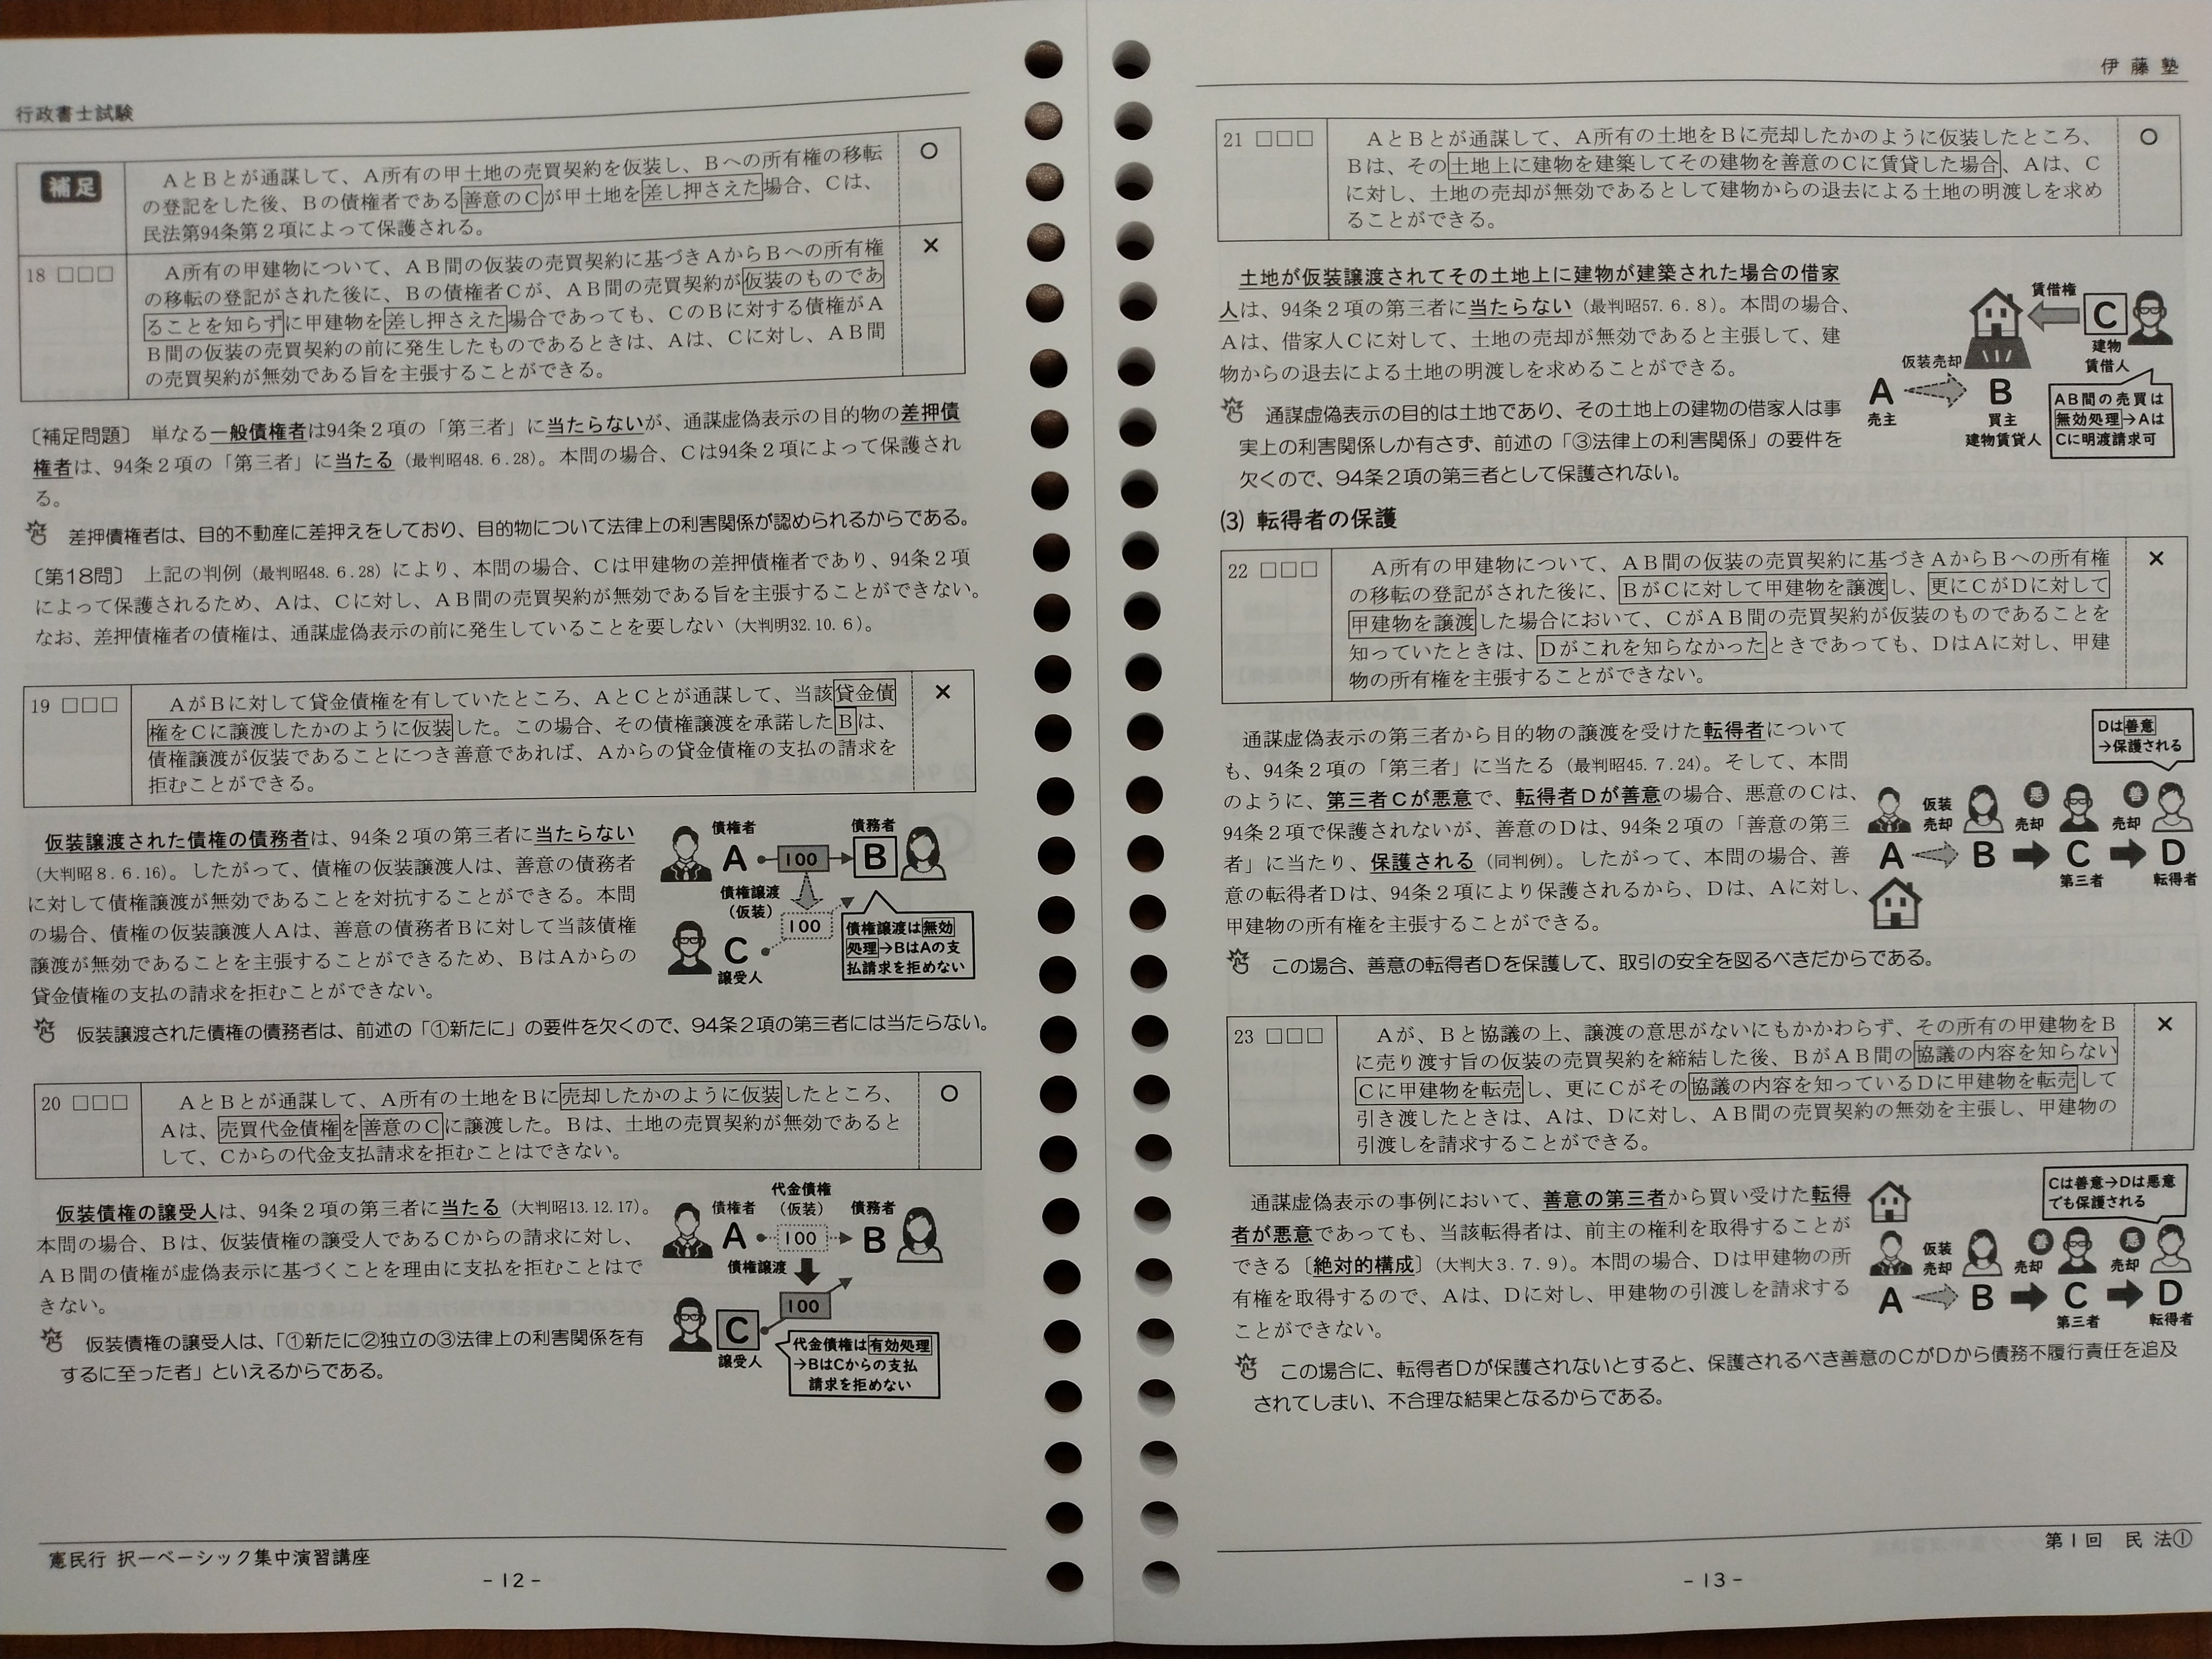 行政書士試験
補足
AとBとが通謀して、A所有の甲土地の売買契約を仮装し、Bへの所有権の移転
の登記をした後、Bの債権者である善意のCが甲土地を差し押さえた場合、Cは、
民法第94条第2項によって保護される。
○
18 □□□
A所有の甲建物について、AB間の仮装の売買契約に基づきAからBへの所有権
の移転の登記がされた後に、Bの債権者Cが、AB間の売買契約が仮装のものであ
ることを知らずに甲建物を差し押さえた場合であっても、CのBに対する債権がA
B間の仮装の売買契約の前に発生したものであるときは、Aは、Cに対し、AB間
の売買契約が無効である旨を主張することができる。
×
〔補足問題〕 単なる一般債権者は94条2項の「第三者」に当たらないが、通謀虚偽表示の目的物の差押債
権者は、94条2項の「第三者」に当たる（最判昭48.6.28）。本問の場合、Cは94条2項によって保護され
る。
差押債権者は、目的不動産に差押えをしており、目的物について法律上の利害関係が認められるからである。
〔第18問〕 上記の判例（最判昭48.6.28）により、本問の場合、Cは甲建物の差押債権者であり、94条2項
によって保護されるため、Aは、Cに対し、AB間の売買契約が無効である旨を主張することができない。
なお、差押債権者の債権は、通謀虚偽表示の前に発生していることを要しない（大判明32.10.6）。
19 □□□
AがBに対して貸金債権を有していたところ、AとCとが通謀して、当該貸金債
権をCに譲渡したかのように仮装した。この場合、その債権譲渡を承諾したBは、
債権譲渡が仮装であることにつき善意であれば、Aからの貸金債権の支払の請求を
拒むことができる。
×
仮装譲渡された債権の債務者は、94条2項の第三者に当たらない
（大判昭8.6.16）。したがって、債権の仮装譲渡人は、善意の債務者
に対して債権譲渡が無効であることを対抗することができる。本問
の場合、債権の仮装譲渡人Aは、善意の債務者Bに対して当該債権
譲渡が無効であることを主張することができるため、BはAからの
貸金債権の支払の請求を拒むことができない。
債権者
債務者
A
100
B
債権譲渡
（仮装）
100
C
譲受人
債権譲渡は無効
処理→BはAの支
払請求を拒めない
仮装譲渡された債権の債務者は、前述の「①新たに」の要件を欠くので、94条2項の第三者には当たらない。
20 □□□
AとBとが通謀して、A所有の土地をBに売却したかのように仮装したところ、
Aは、売買代金債権を善意のCに譲渡した。Bは、土地の売買契約が無効であると
して、Cからの代金支払請求を拒むことはできない。
○
仮装債権の譲受人は、94条2項の第三者に当たる（大判昭13.12.17）。
本問の場合、Bは、仮装債権の譲受人であるCからの請求に対し、
AB間の債権が虚偽表示に基づくことを理由に支払を拒むことはで
きない。
仮装債権の譲受人は、「①新たに②独立の③法律上の利害関係を有
するに至った者」といえるからである。
債権者
代金債権
（仮装）
債務者
A
100
B
債権譲渡
100
C
譲受人
代金債権は有効処理
→BはCからの支払
請求を拒めない
憲民行 択一ベーシック集中演習講座
-12-
伊藤塾
21 □□□
AとBとが通謀して、A所有の土地をBに売却したかのように仮装したところ、
Bは、その土地上に建物を建築してその建物を善意のCに賃貸した場合、Aは、C
に対し、土地の売却が無効であるとして建物からの退去による土地の明渡しを求め
ることができる。
○
土地が仮装譲渡されてその土地上に建物が建築された場合の借家
人は、94条2項の第三者に当たらない（最判昭57.6.8）。本問の場合、
Aは、借家人Cに対して、土地の売却が無効であると主張して、建
物からの退去による土地の明渡しを求めることができる。
通謀虚偽表示の目的は土地であり、その土地上の建物の借家人は事
実上の利害関係しか有さず、前述の「③法律上の利害関係」の要件を
欠くので、94条2項の第三者として保護されない。
賃借権
C
建物
賃借人
仮装売却
A
売主
B
買主
建物賃貸人
AB間の売買は
無効処理→Aは
Cに明渡請求可
(3) 転得者の保護
22 □□□
A所有の甲建物について、AB間の仮装の売買契約に基づきAからBへの所有権
の移転の登記がされた後に、BがCに対して甲建物を譲渡し、更にCがDに対して
甲建物を譲渡した場合において、CがAB間の売買契約が仮装のものであることを
知っていたときは、Dがこれを知らなかったときであっても、DはAに対し、甲建
物の所有権を主張することができない。
×
通謀虚偽表示の第三者から目的物の譲渡を受けた転得者について
も、94条2項の「第三者」に当たる（最判昭45.7.24）。そして、本問
のように、第三者Cが悪意で、転得者Dが善意の場合、悪意のCは、
94条2項で保護されないが、善意のDは、94条2項の「善意の第三
者」に当たり、保護される（同判例）。したがって、本問の場合、善
意の転得者Dは、94条2項により保護されるから、Dは、Aに対し、
甲建物の所有権を主張することができる。
Dは善意
→保護される
仮装
売却
悪
売却
善
売却
A
B
C
D
第三者
転得者
この場合、善意の転得者Dを保護して、取引の安全を図るべきだからである。
23 □□□
Aが、Bと協議の上、譲渡の意思がないにもかかわらず、その所有の甲建物をB
に売り渡す旨の仮装の売買契約を締結した後、BがAB間の協議の内容を知らない
Cに甲建物を転売し、更にCがその協議の内容を知っているDに甲建物を転売して
引き渡したときは、Aは、Dに対し、AB間の売買契約の無効を主張し、甲建物の
引渡しを請求することができる。
×
通謀虚偽表示の事例において、善意の第三者から買い受けた転得
者が悪意であっても、当該転得者は、前主の権利を取得することが
できる〔絶対的構成〕（大判大3.7.9）。本問の場合、Dは甲建物の所
有権を取得するので、Aは、Dに対し、甲建物の引渡しを請求する
ことができない。
Cは善意→Dは悪意
でも保護される
仮装
売却
善
売却
悪
売却
A
B
C
D
第三者
転得者
この場合に、転得者Dが保護されないとすると、保護されるべき善意のCがDから債務不履行責任を追及
されてしまい、不合理な結果となるからである。
第1回 民法①
-13-